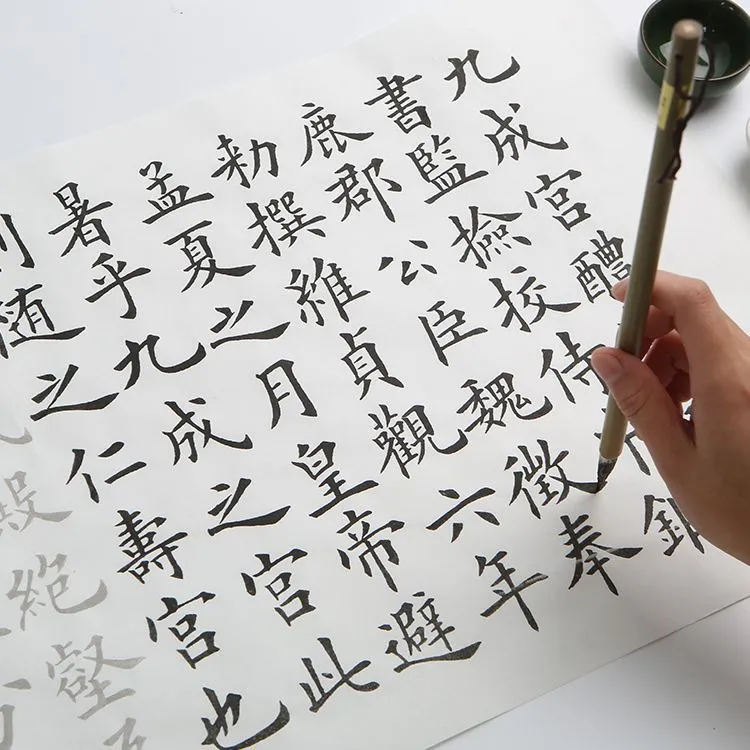 九成宮醴
書監撿挍侍
鹿郡公臣魏徵奉
勅撰維貞觀六年
孟夏之月皇帝避
暑乎九成之宮此
則随之仁壽宮也
殿絕壑